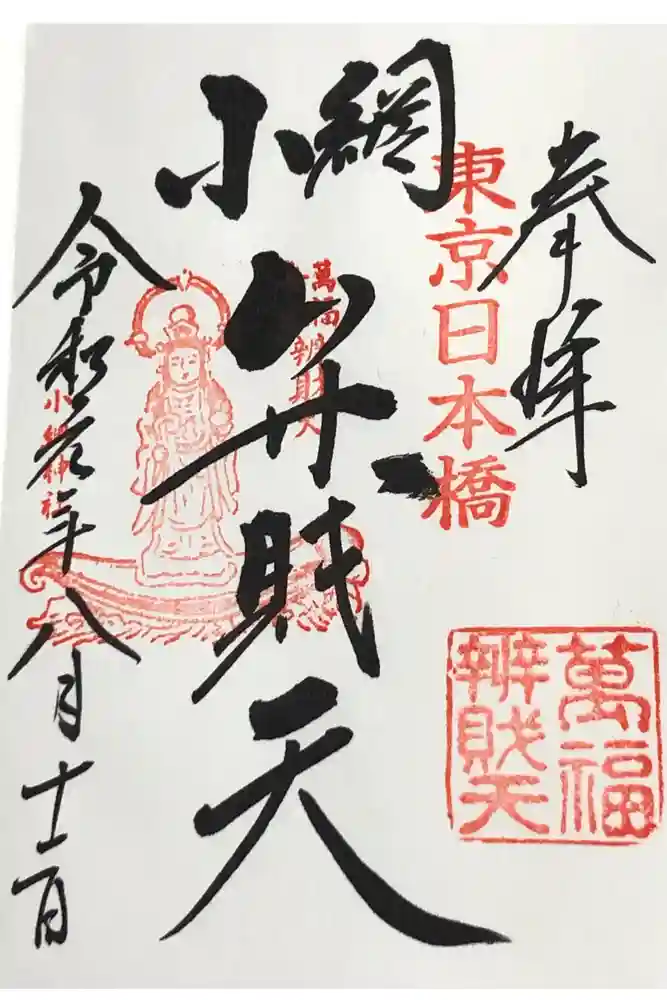 奉拝
東京日本橋
萬福
辨財天
小網
弁財天
萬福辨財天
令和元年八月十二日
小網神社